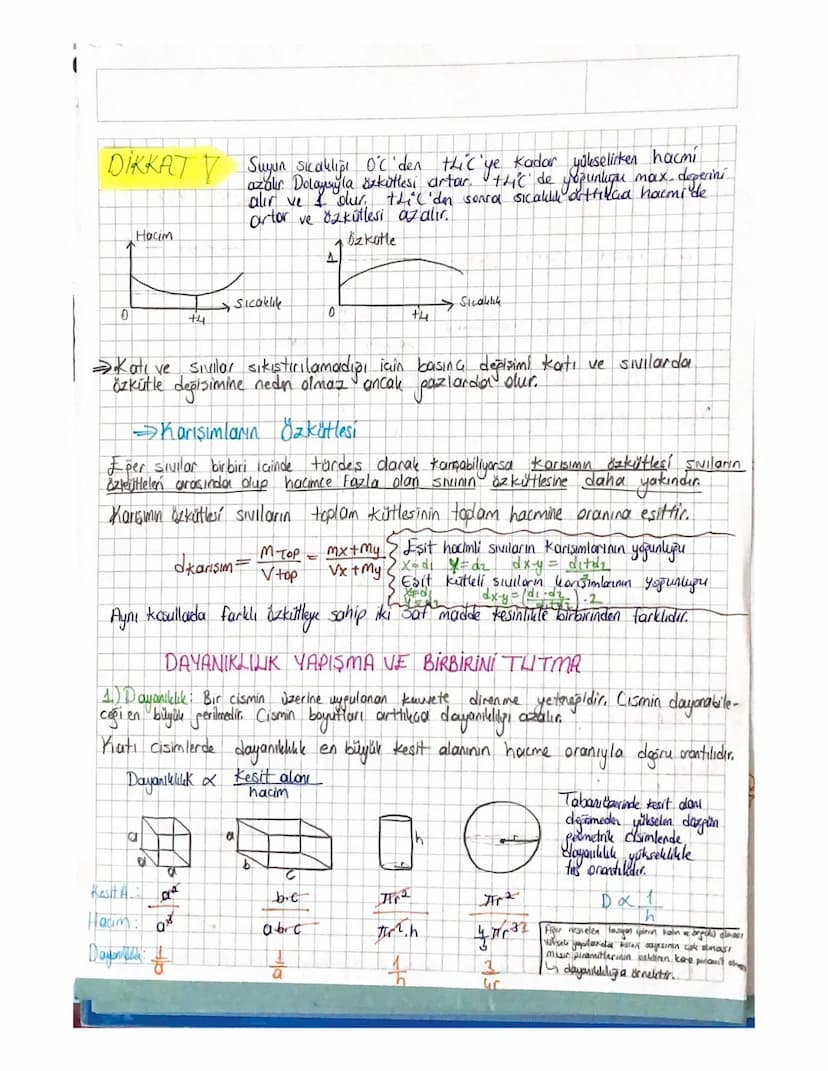 DİKKAT
Suyun sıcaklığı 0°C'den +4°C'ye kadar yükselirken hacmi
azalır. Dolayısıyla özkütlesi artar. +4°C'de yoğunluğu max. değerini
alır ve 1 olur. +4°C'den sonra sıcaklık arttıkça hacmi de
artar ve özkütlesi azalır.
Hacim
Sıcaklık
0
+4
Özkütle
1
Sıcaklık
0
+4
⇒ Katı ve sıvılar sıkıştırılamadığı için basınç değişimi katı ve sıvılarda
özkütle değişimine neden olmaz ancak gazlarda olur.
⇒ Karışımların Özkütlesi
Eğer sıvılar birbiri içinde türdeş olarak karışabiliyorsa karışımın özkütlesi sıvıların
özkütleleri arasında olup hacimce fazla olan sıvının özkütlesine daha yakındır.
Karışımın özkütlesi sıvıların toplam kütlesinin toplam hacmine oranına eşittir.
dkarışım = M-TOP / Vtop = mx+my / Vx+My
Eşit hacimli sıvıların karışımlarının yoğunluğu
x=d1 y=d2 dx-y = d1+d2
Eşit kütleli sıvıların karışımlarının yoğunluğu
x=d1 y=d2 dx-y = (d1.d2 / d1+d2).2
Aynı koşullarda farklı özkütleye sahip iki saf madde kesinlikle birbirinden farklıdır.
DAYANIKLILIK YAPIŞMA VE BİRBİRİNİ TUTMA
1.) Dayanıklılık: Bir cismin üzerine uygulanan kuvvete direnme yeteneğidir. Cismin dayanabile-
ceği en büyük gerilmedir. Cismin boyutları arttıkça dayanıklılığı azalır.
Katı cisimlerde dayanıklılık en büyük kesit alanının hacme oranıyla doğru orantılıdır.
Dayanıklılık ∝ Kesit alanı / hacim
a
a
a
a
b
c
h
r
r
Tabanı üzerinde kesit alanı
değişmeden yükselen düzgün
geometrik cisimlerde
dayanıklılık yükseklikle
ters orantılıdır.
D ∝ 1/h
Kesit A.: a² b.c πr² πr²
Hacim: a³ a.b.c πr².h 4/3 πr³
Dayanıklılık: 1/a 1/a 1/h 3/4r
yüksek yapılarda kolon sayısının çok olması
↳ dayanıklılığa örnektir.